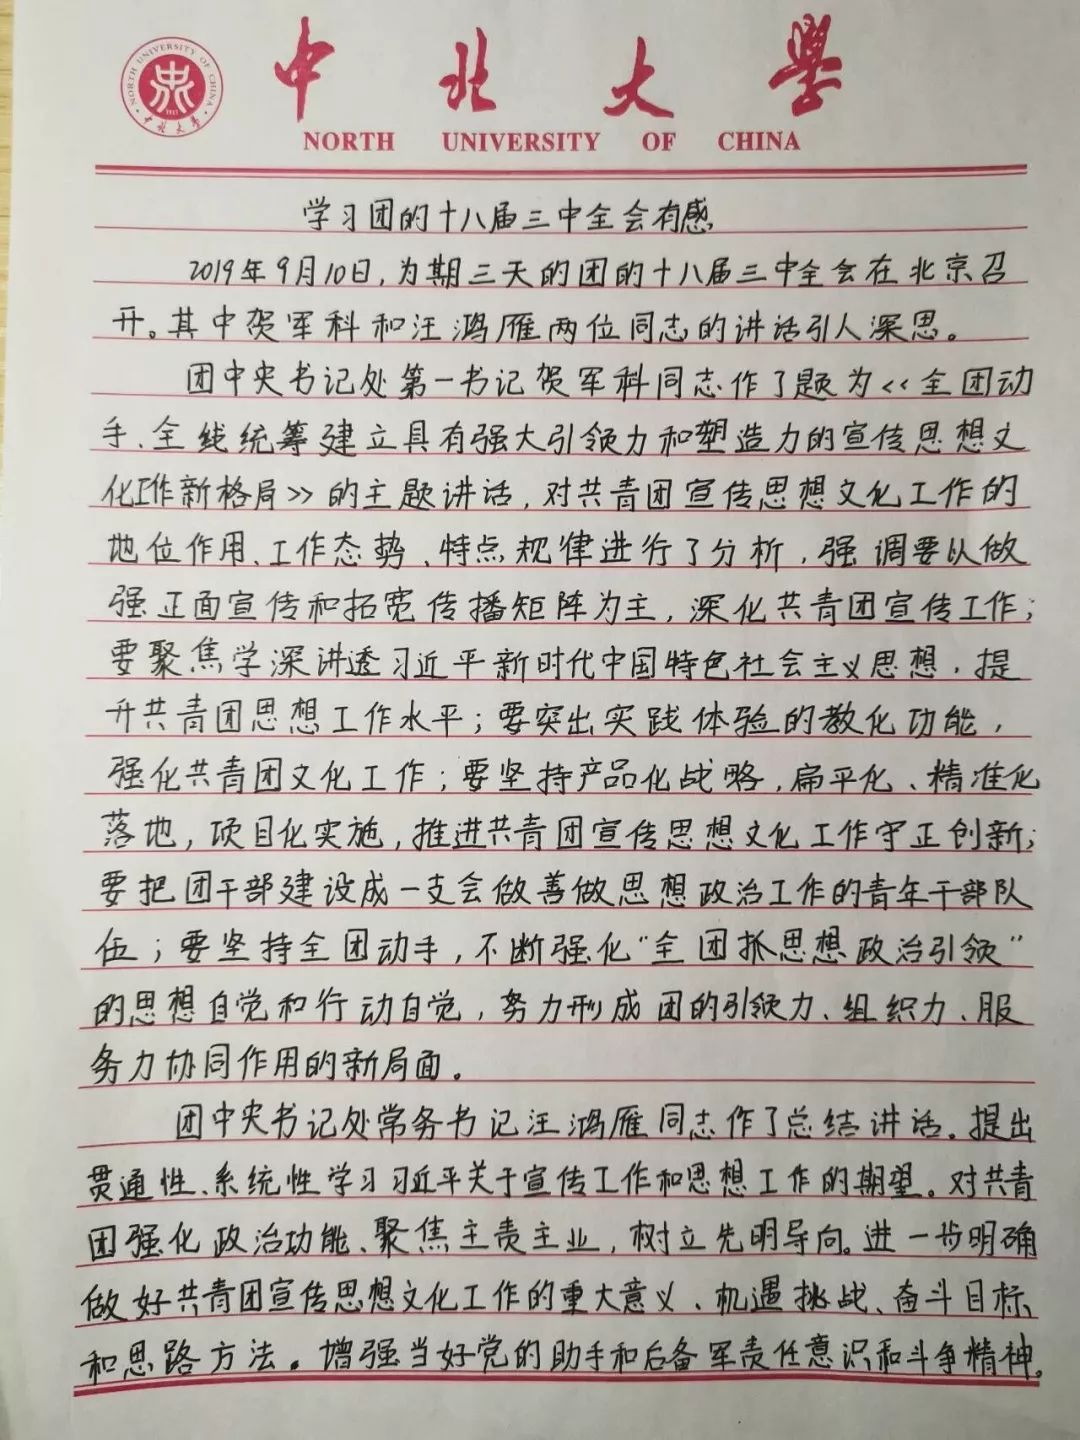 中北大學
NORTH UNIVERSITY OF CHINA
NORTH UNIVERSITY OF CHINA
1941
中北大學
学习团的十八届三中全会有感
2019年9月10日,为期三天的团的十八届三中全会在北京召
开。其中贺军科和汪鸿雁两位同志的讲话引人深思。
团中央书记处第一书记贺军科同志作了题为<<全团动
手、全线统筹建立具有强大引领力和塑造力的宣传思想文
化工作新格局>>的主题讲话,对共青团宣传思想文化工作的
地位作用、工作态势、特点规律进行了分析,强调要以做
强正面宣传和拓宽传播矩阵为主,深化共青团宣传工作;
要聚焦学深讲透习近平新时代中国特色社会主义思想,提
升共青团思想工作水平;要突出实践体验的教化功能,
强化共青团文化工作;要坚持产品化战略,扁平化、精准化
落地,项目化实施,推进共青团宣传思想文化工作守正创新;
要把团干部建设成一支会做善做思想政治工作的青年干部队
伍;要坚持全团动手,不断强化“全团抓思想政治引领”
的思想自觉和行动自觉,努力形成团的引领力、组织力、服
务力协同作用的新局面。
团中央书记处常务书记汪鸿雁同志作了总结讲话。提出
贯通性、系统性学习习近平关于宣传工作和思想工作的期望。对共青
团强化政治功能、聚焦主责主业,树立先明导向。进一步明确
做好共青团宣传思想文化工作的重大意义、机遇挑战、奋斗目标
和思路方法。增强当好党的助手和后备军责任意识和斗争精神。